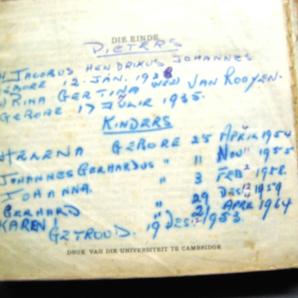 DIE EINDE
PIETERS
JACOBUS HENDRIKUS JOHANNES
GEBORE 12 JAN. 1928
RINA GERTINA VAN ROOYEN.
GEBORE 17 JULIE 1935.
KINDERS
HELENA GEBORE 25 APRIL 1954
JOHANNES GERHARDUS " 11 NOV 1955
JOHANNA. " 3 FEB 1958.
GERHARD " 29 DES 1959
KAREN " 21 APRIL 1964
GETROUD. 19 DES 1953.
DRUK VAN DIE UNIVERSITEIT TE CAMBRIDGE